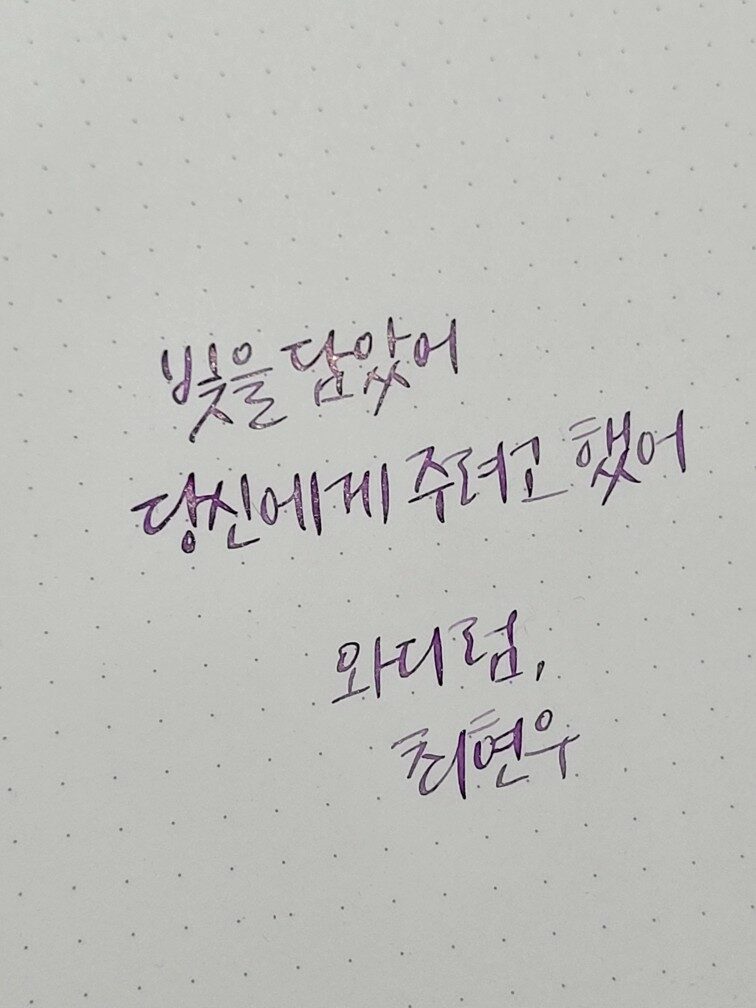 빛을 담았어
당신에게 주려고 했어
와디럼,
최현우